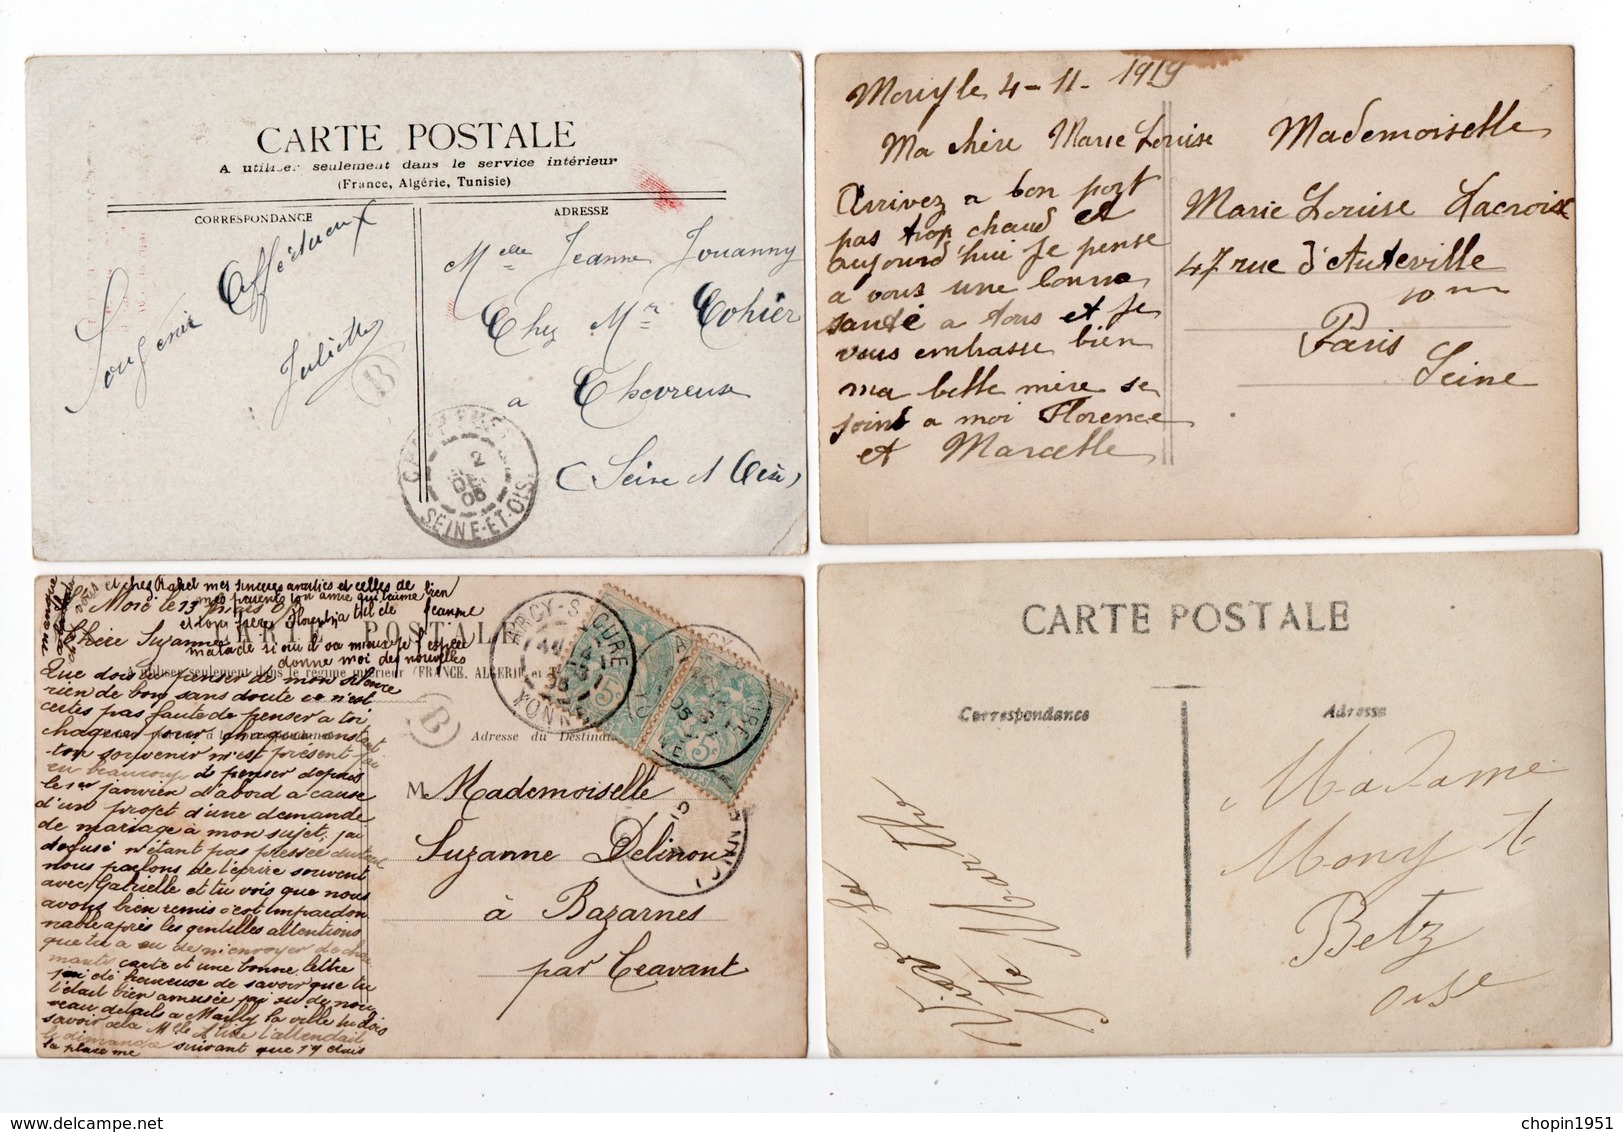 CARTE POSTALE
A utiliser seulement dans le service intérieur
(France, Algérie, Tunisie)
CORRESPONDANCE
ADRESSE
Souvenir Affectueux
Juliette
B
Melle Jeanne Jouanny
Chez Mr Cohier
a Chevreuse
(Seine et Oise)
2
05
SEINE-ET-OISE
le 4-11-1919
Ma chère Marie Louise
Arrivez a bon port
pas trop chaud et
aujourd'hui Je pense
a vous une bonne
santé a tous et Je
vous embrasse bien
ma belle mère se
joint a moi Florence
et Marcelle
Mademoiselle
Marie Louise Lacroix
47 rue d'Auteville
10 me
Paris
Seine
et chez Rachel mes sincères amitiés et celles de
mes parents ton amie qui t'aime bien
Jeanne
malade si oui il va mieux je l'espère
donne moi des nouvelles
le 13
Chère Suzanne
CARTE POSTALE
A utiliser seulement dans le régime intérieur (FRANCE, ALGERIE et
Que dois tu penser de mon silence
rien de bon sans doute ce n'est
certes pas faute de penser a toi
chaque jour chaque instant
ton souvenir m'est présent j'ai
eu beaucoup de penser depuis
le 1er janvier d'abord a cause
d'un projet d'une demande
de mariage à mon sujet, j'ai
refusé n'étant pas pressée du tout
nous parlons de t'écrire souvent
avec Gabrielle et tu vois que nous
avons bien remis c'est impardon
nable après les gentilles attentions
que tu a eu de m'envoyer de cha
mante carte et une bonne lettre
j'ai été heureuse de savoir que tu
t'était bien amusée j'ai su de nou
veau détails a Mailly la ville tu dois
savoir cela Melle l'attendait
suivant que
la place me
B
ARCY-S-CURE
YONNE
5c
5c
Adresse du Destina
M Mademoiselle
Suzanne Delinon
à Bazarnes
par Cravant
CARTE POSTALE
Correspondance
Adresse
Vive la
Ste Marthe
Madame
Mony
Betz
Oise
chopin1951